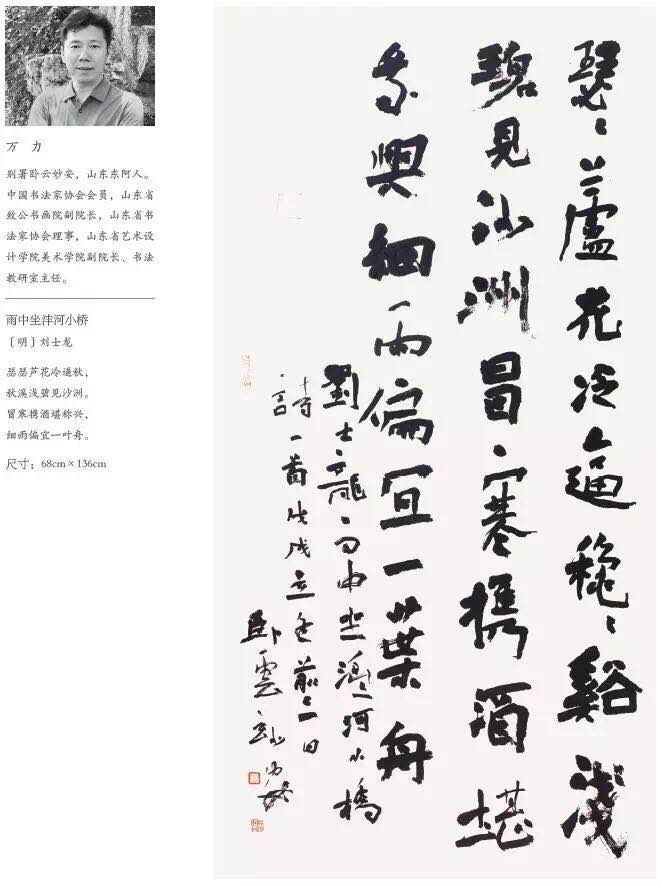 万 力
别署卧云妙安，山东东阿人。
中国书法家协会会员，山东省
致公书画院副院长，山东省书
法家协会理事，山东省艺术设
计学院美术学院副院长、书法
教研室主任。
雨中坐沣河小桥
［明］刘士龙
瑟瑟芦花冷逼秋，
秋溪浅碧见沙洲。
冒寒携酒堪称兴，
细雨偏宜一叶舟。
尺寸：68cm×136cm
瑟〻蘆花冷逼穐〻谿浅
碧見沙洲冒寒携酒堪
興細雨偏宜一葉舟
劉士龍雨中坐灃河小橋
一首戊戌立冬前一日
卧雲